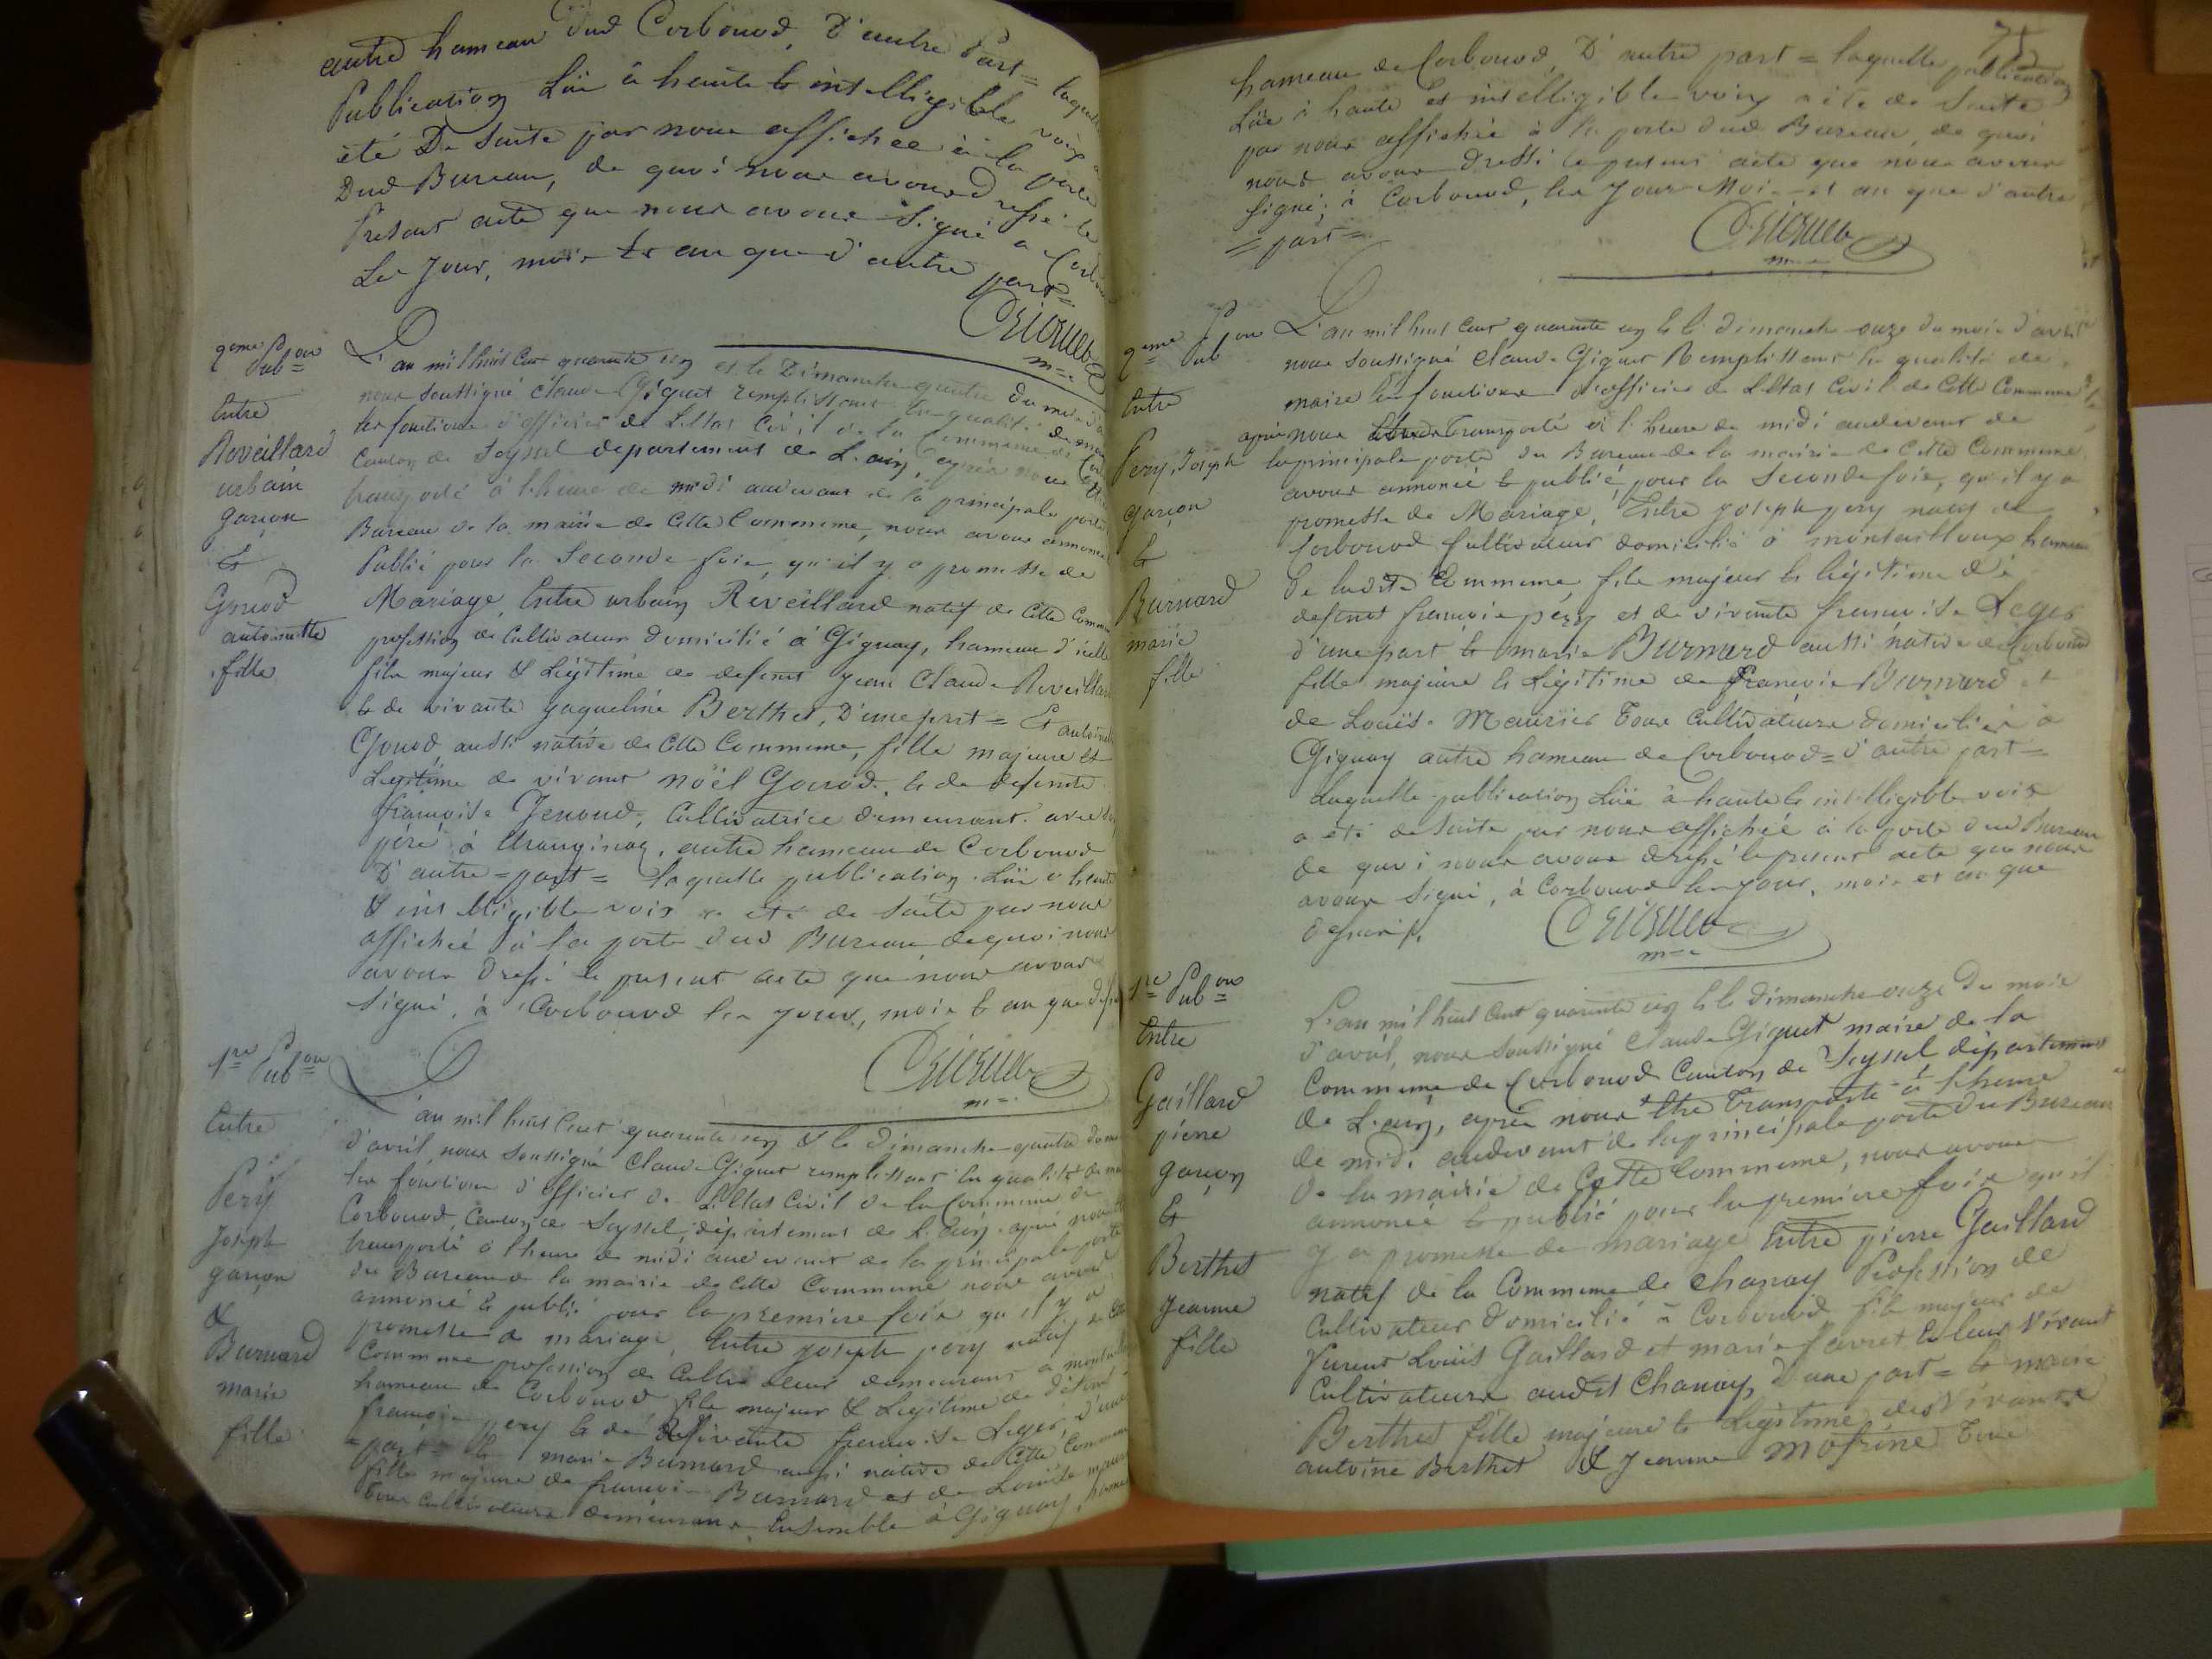 autre hameau dud Corbonod, D'autre Part = laquelle
Publication Lüe à haute & intelligible voix a
été De suite par nous affichée à la porte
Dud Bureau, de quoi nous avons dressé le
Présent acte que nous avons signé a
Les Jour, mois & an que d'autre part =
2eme Pub on
Entre
Reveillard
urbain
garçon
&
Gonod
antoinette
fille
L'an mil huit cent quarante un et le Dimanche quatre du mois
nous soussigné Claude Giguet remplissant la qualité de
les fonctions d'officier de L'Etat Civil de la Commune de
Canton de Seyssel departement de L'ain, après nous être
transporté à l'heure de midi audevant de la principale porte
Bureau de la mairie de Cette Commune, nous avons annoncé
Publié pour la Seconde fois, qu'il y a promesse de
Mariage, Entre urbain Reveillard natif de Cette
profession de Cultivateur domicilié à Gignay, hameau d'icelle
fils majeur & Légitime de defunt jean Claude
& de vivante jaqueline Berthet, D'une part = Et
Gonod aussi native de Cette Commune, fille majeure et
Legitime de vivant noël Gonod, & de defunte
françoise Jenoud, Cultivatrice demeurant avec
père à autre hameau de Corbonod
D'autre = part = laquelle publication Lüe à haute
& intelligible voix a été de suite par nous
affichée à la porte dud Bureau de quoi nous
avons dressé le present acte que nous avons
signé, à Corbonod les jour, mois & an que
1re Pub on
Entre
Pery
Joseph
garçon
&
Burnard
marie
fille
L'an mil huit Cent quarante un & le Dimanche quatre
d'avril, nous soussigné Claude Giguet remplissant la qualité de
les fonctions d'officier de L'Etat Civil de la Commune de
Corbonod, Canton de Seyssel, département de L'ain, après nous
transporté à l'heure de midi audevant de la principale porte
du Bureau de la mairie de Cette Commune nous avons
annoncé & publié pour la premiere fois qu'il y a
promesse de mariage, Entre joseph pery natif de
Commune profession de Cultivateur demeurant à
hameau de Corbonod fils majeur & Legitime de défunt
françois pery & de vivante françoise Leger,
= part = & marie Burnard aussi native de Cette
fille majeure de françois Burnard et de Louise
tous cultivateurs demeurans Ensemble à Gignay,
75
hameau de Corbonod, D'autre part = laquelle publication
Lüe à haute et intelligible voix a été de suite
par nous affichée à la porte dud Bureau, de quoi
nous avons dressé le present acte que nous avons
signé, à Corbonod, les jour Mois et an que d'autre
= part =
2eme Pub on
Entre
Pery, Joseph
garçon
&
Burnard
marie
fille
L'an mil huit Cent quarante un & le dimanche onze du mois d'avril
nous soussigné Claude Giguet Remplissant la qualité de
maire les fonctions d'officier de L'Etat Civil de Cette Commune
après nous transporté à l'heure de midi audevant de
la principale porte du Bureau de la mairie de Cette Commune
avons annoncé & publié, pour la Seconde fois, qu'il y a
promesse de Mariage, Entre joseph pery natif de
Corbonod Cultivateur domicilié à hameau
De ladite Commune, fils majeur & légitime de
defunt françois pery et de vivante françoise Leger
d'une part & marie Burnard aussi native de Corbonod
fille majeure & Légitime de françois Burnard et
de Louise Maurier tous cultivateurs domiciliés à
Gignay autre hameau de Corbonod = d'autre part =
Laquelle publication Lüe à haute & intelligible voix
a été de suite par nous affichée à la porte dud Bureau
de quoi nous avons dressé le present acte que nous
avons signé, à Corbonod les jour, mois et an que
1re Pub on
Entre
Gaillard
pierre
garçon
&
Berthet
jeanne
fille
L'an mil huit cent quarante un & le dimanche onze du mois
d'avril, nous soussigné Claude Giguet maire de la
Commune de Corbonod Canton de Seyssel département
de L'ain, après nous être transporté à l'heure
de midi audevant de la principale porte du Bureau
De la mairie de Cette Commune, nous avons
annoncé & publié pour la premiere fois qu'il
y a promesse de mariage Entre pierre Gaillard
natif de la Commune de Chanay Profession de
Cultivateur domicilié à Corbonod fils majeur de
Louis Gaillard et marie favret Et leur vivant
Cultivateurs audit Chanay, D'une part = & marie
Berthet fille majeure & Légitime des vivants
antoine Berthet & Jeanne tous